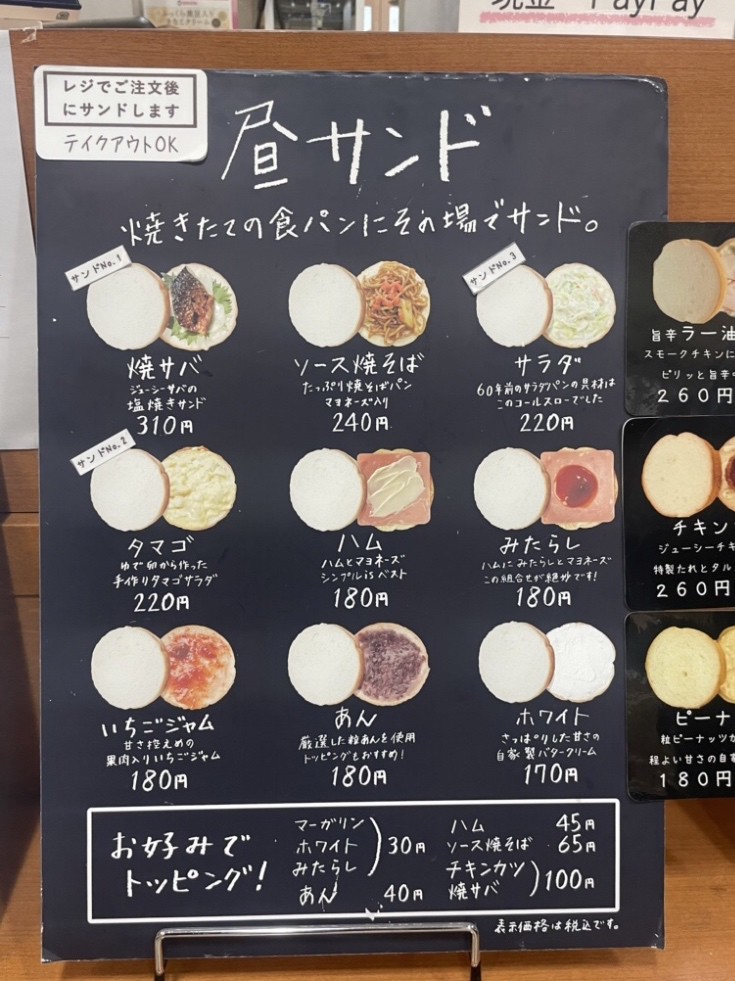 現金 PayPay
レジでご注文後
にサンドします
テイクアウトOK
昼サンド
焼きたての食パンにその場でサンド。
サンドNo.1
焼サバ
ジューシーサバの
塩焼きサンド
310円
ソース焼そば
たっぷり焼そばパン
マヨネーズ入り
240円
サンドNo.3
サラダ
60年前のサラダパンの具材は
このコールスローでした
220円
サンドNo.2
タマゴ
ゆで卵から作った
手作りタマゴサラダ
220円
ハム
ハムとマヨネーズ
シンプルisベスト
180円
みたらし
ハムにみたらしとマヨネーズ
この組合せが絶妙です!
180円
いちごジャム
甘さ控えめの
果肉入りいちごジャム
180円
あん
厳選した粒あんを使用
トッピングもおすすめ!
180円
ホワイト
さっぱりした甘さの
自家製バタークリーム
170円
お好みで
トッピング!
マーガリン
ホワイト
みたらし
30円
あん 40円
ハム 45円
ソース焼そば 65円
チキンカツ
焼サバ
100円
表示価格は税込です。
旨辛ラー油
スモークチキンに
ピリッと旨辛
260円
チキン
ジューシーチキ
特製たれとタル
260円
ピーナ
粒ピーナッツが
程よい甘さの自家
180円